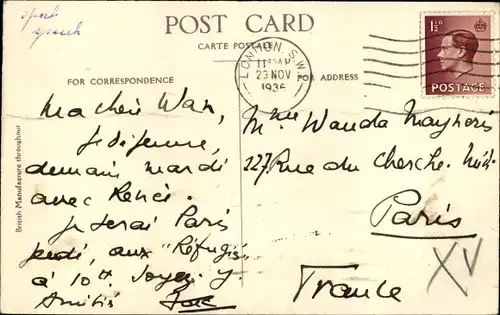 POST CARD
CARTE POSTALE
FOR CORRESPONDENCE
FOR ADDRESS
LONDON. S.W.
11 AM
23 NOV
1936
1½D
POSTAGE
British Manufacture throughout
speech
Ma chère Wan,
Je déjeune,
demain mardi
avec Renée.
Je serai Paris
jeudi, aux "Réfugiés"
à 10H. Soyez y.
Amitiés
Mme Wanda
127 Rue du Cherche-Midi
Paris
XV
France